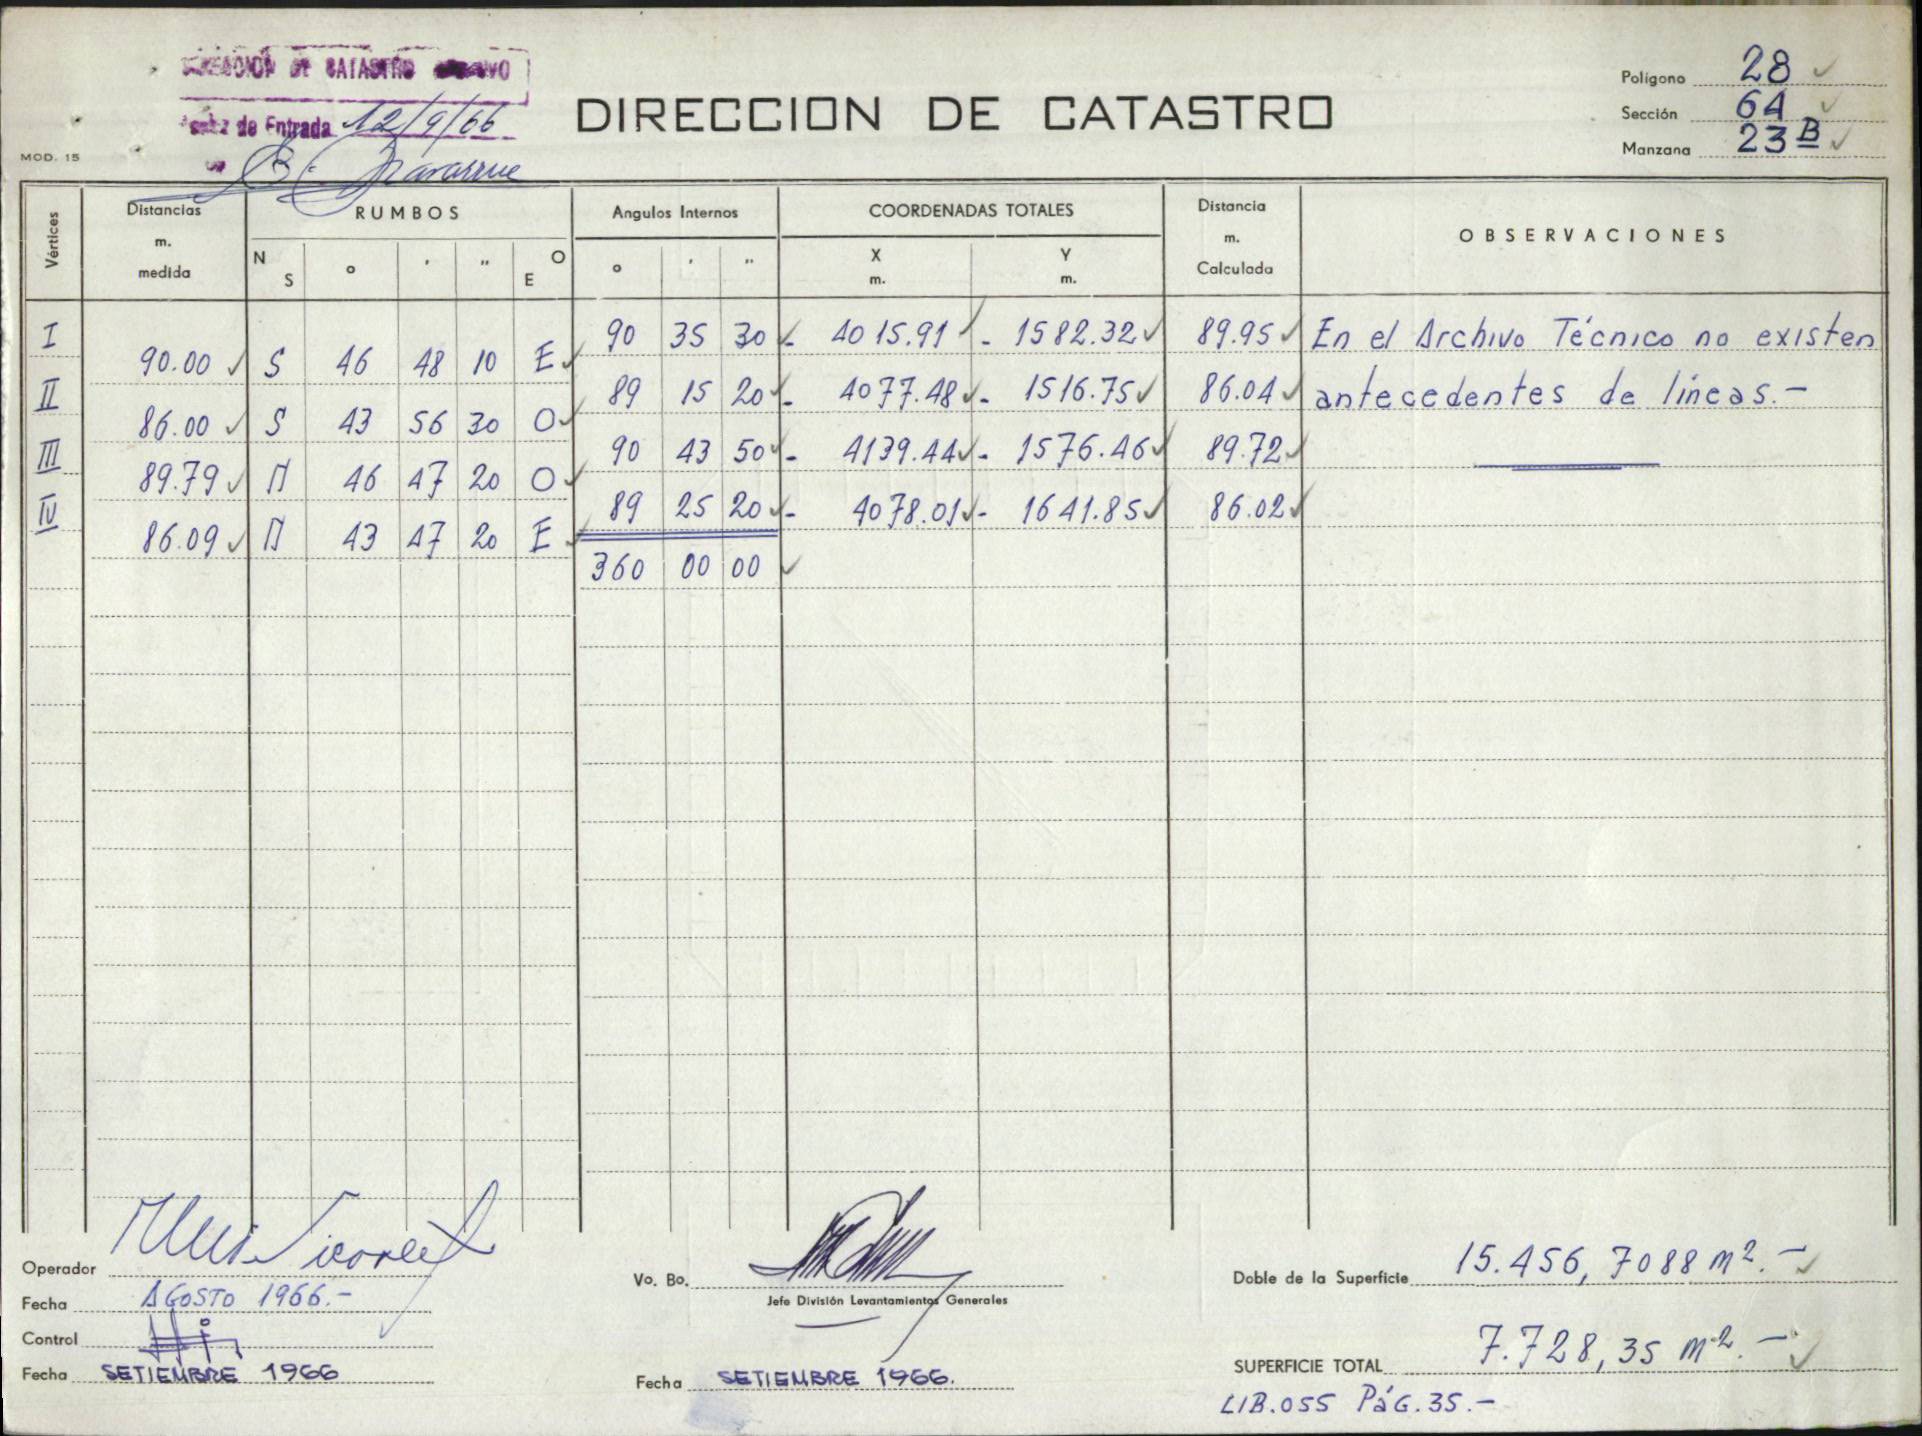 DIRECCION DE CATASTRO
de Entrada 12/9/66
B. Navarrue
DIRECCION DE CATASTRO
MOD. 15
Polígono 28
Sección 64
Manzana 23 B
Vértices
Distancias m. medida
RUMBOS
N S ° ' " O E
Angulos Internos
° ' "
COORDENADAS TOTALES
X m. Y m.
Distancia m. Calculada
OBSERVACIONES
I 90 35 30 - 4015.91 - 1582.32 89.95 En el Archivo Técnico no existen
90.00 S 46 48 10 E
II 89 15 20 - 4077.48 - 1516.75 86.04 antecedentes de líneas.-
86.00 S 43 56 30 O
III 90 43 50 - 4139.44 - 1576.46 89.72
89.79 N 46 47 20 O
IV 89 25 20 - 4078.01 - 1641.85 86.02
86.09 N 43 47 20 E
360 00 00
Operador
Fecha AGOSTO 1966.-
Control
Fecha SETIEMBRE 1966
Vo. Bo.
Jefe División Levantamientos Generales
Fecha SETIEMBRE 1966.
Doble de la Superficie 15.456,7088 m2.-
SUPERFICIE TOTAL 7.728,35 m2.-
LIB.055 PÁG.35.-